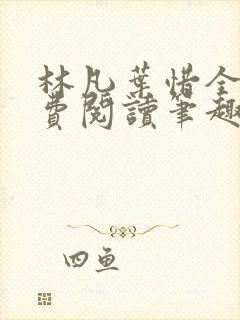 林凡葉惜全
費閱讀筆趣
四魚